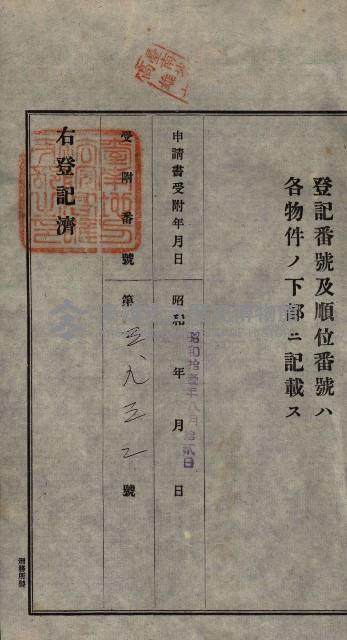 登記番號及順位番號ハ
各物件ノ下部ニ記載ス
申請書受附年月日
昭和 年 月 日
昭和拾壹年八月拾貳日
受附番號
第五九五二號
右登記濟